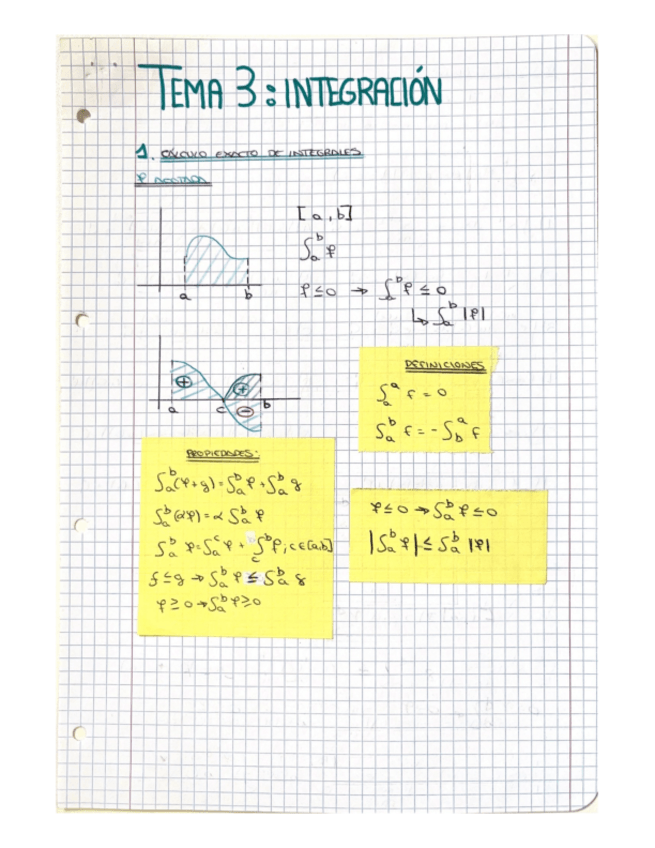 TEMA 3: INTEGRACIÓN
1. CÁLCULO EXACTO DE INTEGRALES
f ACOTADA
[a,b]
∫ₐᵇ f
f ≤ 0 → ∫ₐᵇ f ≤ 0
↳ ∫ₐᵇ |f|
a b
⊕ ⊕
a c ⊖ b
DEFINICIONES
∫ₐᵃ f = 0
∫ₐᵇ f = -∫_b^a f
PROPIEDADES:
∫ₐᵇ (f+g) = ∫ₐᵇ f + ∫ₐᵇ g
∫ₐᵇ (αf) = α ∫ₐᵇ f
∫ₐᵇ f = ∫ₐᶜ f + ∫_c^b f ; c ∈ [a,b]
f ≤ g → ∫ₐᵇ f ≤ ∫ₐᵇ g
f ≥ 0 → ∫ₐᵇ f ≥ 0
f ≤ 0 → ∫ₐᵇ f ≤ 0
|∫ₐᵇ f| ≤ ∫ₐᵇ |f|